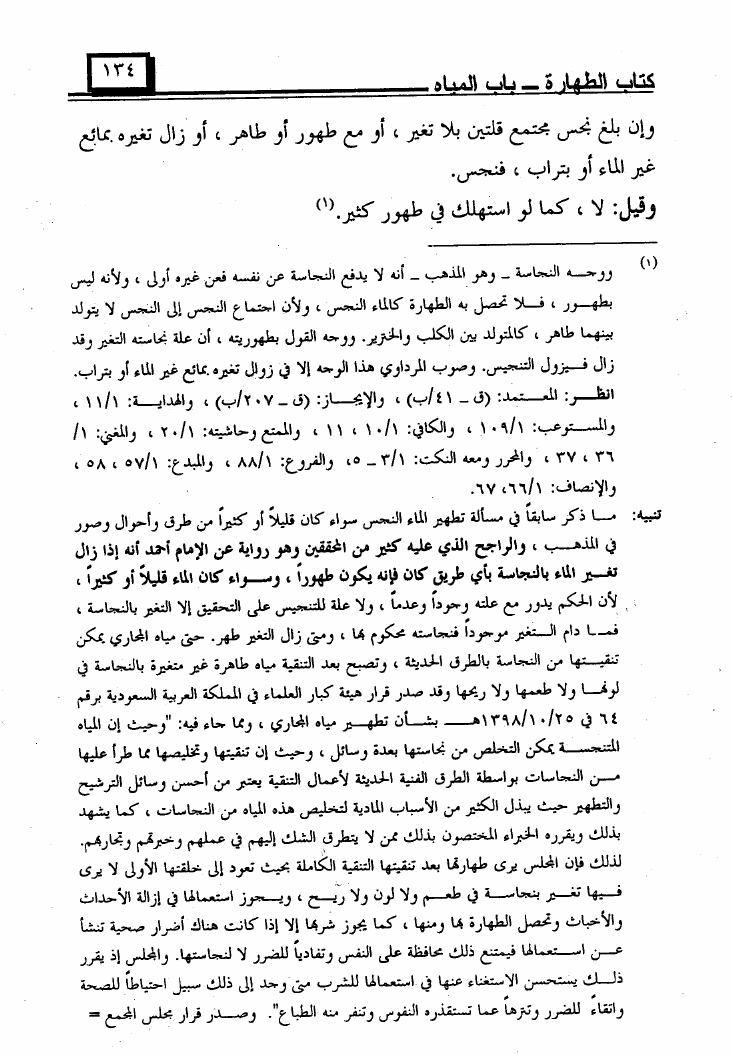 ١٣٤
كتاب الطهارة ـ باب المياه
وإن بلغ نجس مجتمع قلتين بلا تغير ، أو مع طهور أو طاهر ، أو زال تغيره بمائع
غير الماء أو بتراب ، فنجس.
وقيل: لا ، كما لو استهلك في طهور كثير.(١)
(١) ووجـــه النجاسة ـ وهو المذهب ـ أنه لا يدفع النجاسة عن نفسه فعن غيره أولى ، ولأنه ليس
بطهـــور ، فـــلا تحصل به الطهارة كالماء النجس ، ولأن اجتماع النجس إلى النجس لا يتولد
بينهما طاهر ، كالمتولد بين الكلب والخنزير. ووجه القول بطهوريته ، أن علة نجاسته التغير وقد
زال فـــيزول التنجيس. وصوب المرداوي هذا الوجه إلا في زوال تغيره بمائع غير الماء أو بتراب.
انظـــر: المعـــتمد: (ق ـ ٤١/ب) ، والإيجـــاز: (ق ـ ٢٠٧/ب) ، والهدايـــة: ١١/١ ،
والمســـتوعب: ١٠٩/١ ، والكافي: ١٠/١ ، ١١ ، والممتع وحاشيته: ٢٠/١ ، والمغني: ١/
٣٦ ، ٣٧ ، والمحرر ومعه النكت: ٣/١ ـ ٥، والفروع: ٨٨/١ ، والمبدع: ٥٧/١ ، ٥٨ ،
والإنصاف: ٦٦/١، ٦٧.
تنبيه: مـــا ذكر سابقاً في مسألة تطهير الماء النجس سواء كان قليلاً أو كثيراً من طرق وأحوال وصور
في المذهـــب ، والراجح الذي عليه كثير من المحققين وهو رواية عن الإمام أحمد أنه إذا زال
تغـــير الماء بالنجاسة بأي طريق كان فإنه يكون طهوراً ، وســـواء كان الماء قليلاً أو كثيراً ،
لأن الحكم يدور مع علته وجوداً وعدماً ، ولا علة للتنجيس على التحقيق إلا التغير بالنجاسة ،
فمـــا دام الـــتغير موجوداً فنجاسته محكوم بها ، ومتى زال التغير طهر. حتى مياه المجاري يمكن
تنقيـــتها من النجاسة بالطرق الحديثة ، وتصبح بعد التنقية مياه طاهرة غير متغيرة بالنجاسة في
لونها ولا طعمها ولا ريحها وقد صدر قرار هيئة كبار العلماء في المملكة العربية السعودية برقم
٦٤ في ١٣٩٨/١٠/٢٥هـــ بشـــأن تطهـــير مياه المجاري ، ومما جاء فيه: "وحيث إن المياه
المتنجســـة يمكن التخلص من نجاستها بعدة وسائل ، وحيث إن تنقيتها وتخليصها مما طرأ عليها
مـــن النجاسات بواسطة الطرق الفنية الحديثة لأعمال التنقية يعتبر من أحسن وسائل الترشيح
والتطهير حيث يبذل الكثير من الأسباب المادية لتخليص هذه المياه من النجاسات ، كما يشهد
بذلك ويقرره الخبراء المختصون بذلك ممن لا يتطرق الشك إليهم في عملهم وخبرتهم وتجاربهم.
لذلك فإن المجلس يرى طهارتها بعد تنقيتها التنقية الكاملة بحيث تعود إلى خلقتها الأولى لا يرى
فـــيها تغـــير بنجاســـة في طعـــم ولا لون ولا ريـــح ، ويـــجوز استعمالها في إزالة الأحداث
والأخباث وتحصل الطهارة بها ومنها ، كما يجوز شربها إلا إذا كانت هناك أضرار صحية تنشأ
عـــن اســـتعمالها فيمتنع ذلك محافظة على النفس وتفادياً للضرر لا لنجاستها. والمجلس إذ يقرر
ذلـــك يستحسن الاستغناء عنها في استعمالها للشرب متى وجد إلى ذلك سبيل احتياطاً للصحة
واتقاءً للضرر وتنزهاً عما تستقذره النفوس وتنفر منه الطباع". وصـــدر قرار مجلس المجمع =